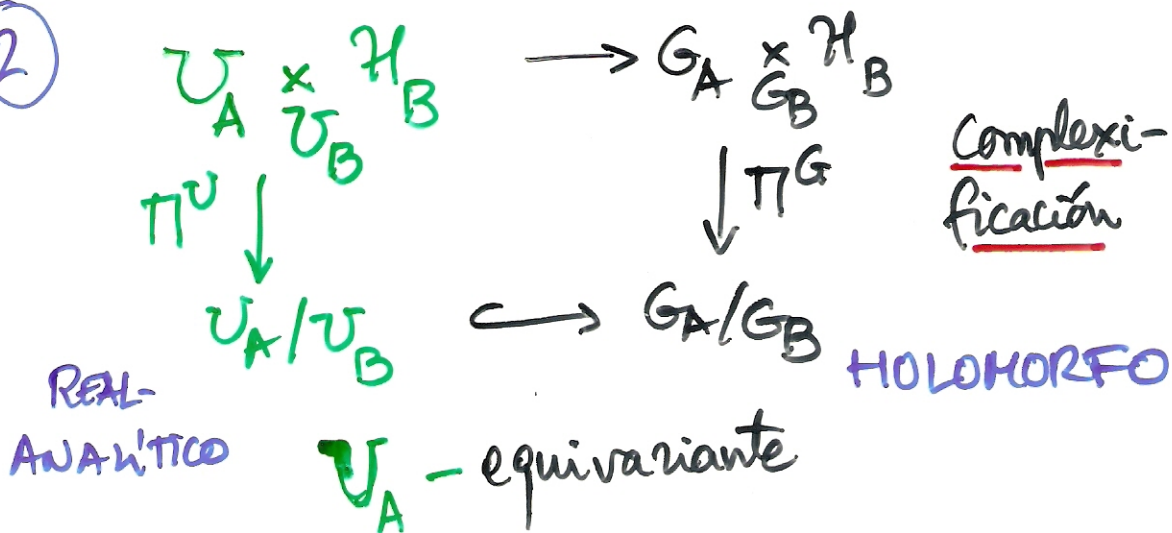 2
U_A × _{U_B} H_B → G_A × _{G_B} H_B
Π^U ↓ ↓ Π^G
Complexi-
ficación
U_A / U_B ↪ G_A / G_B
HOLOMORFO
REAL-
ANALÍTICO
U_A - equivariante